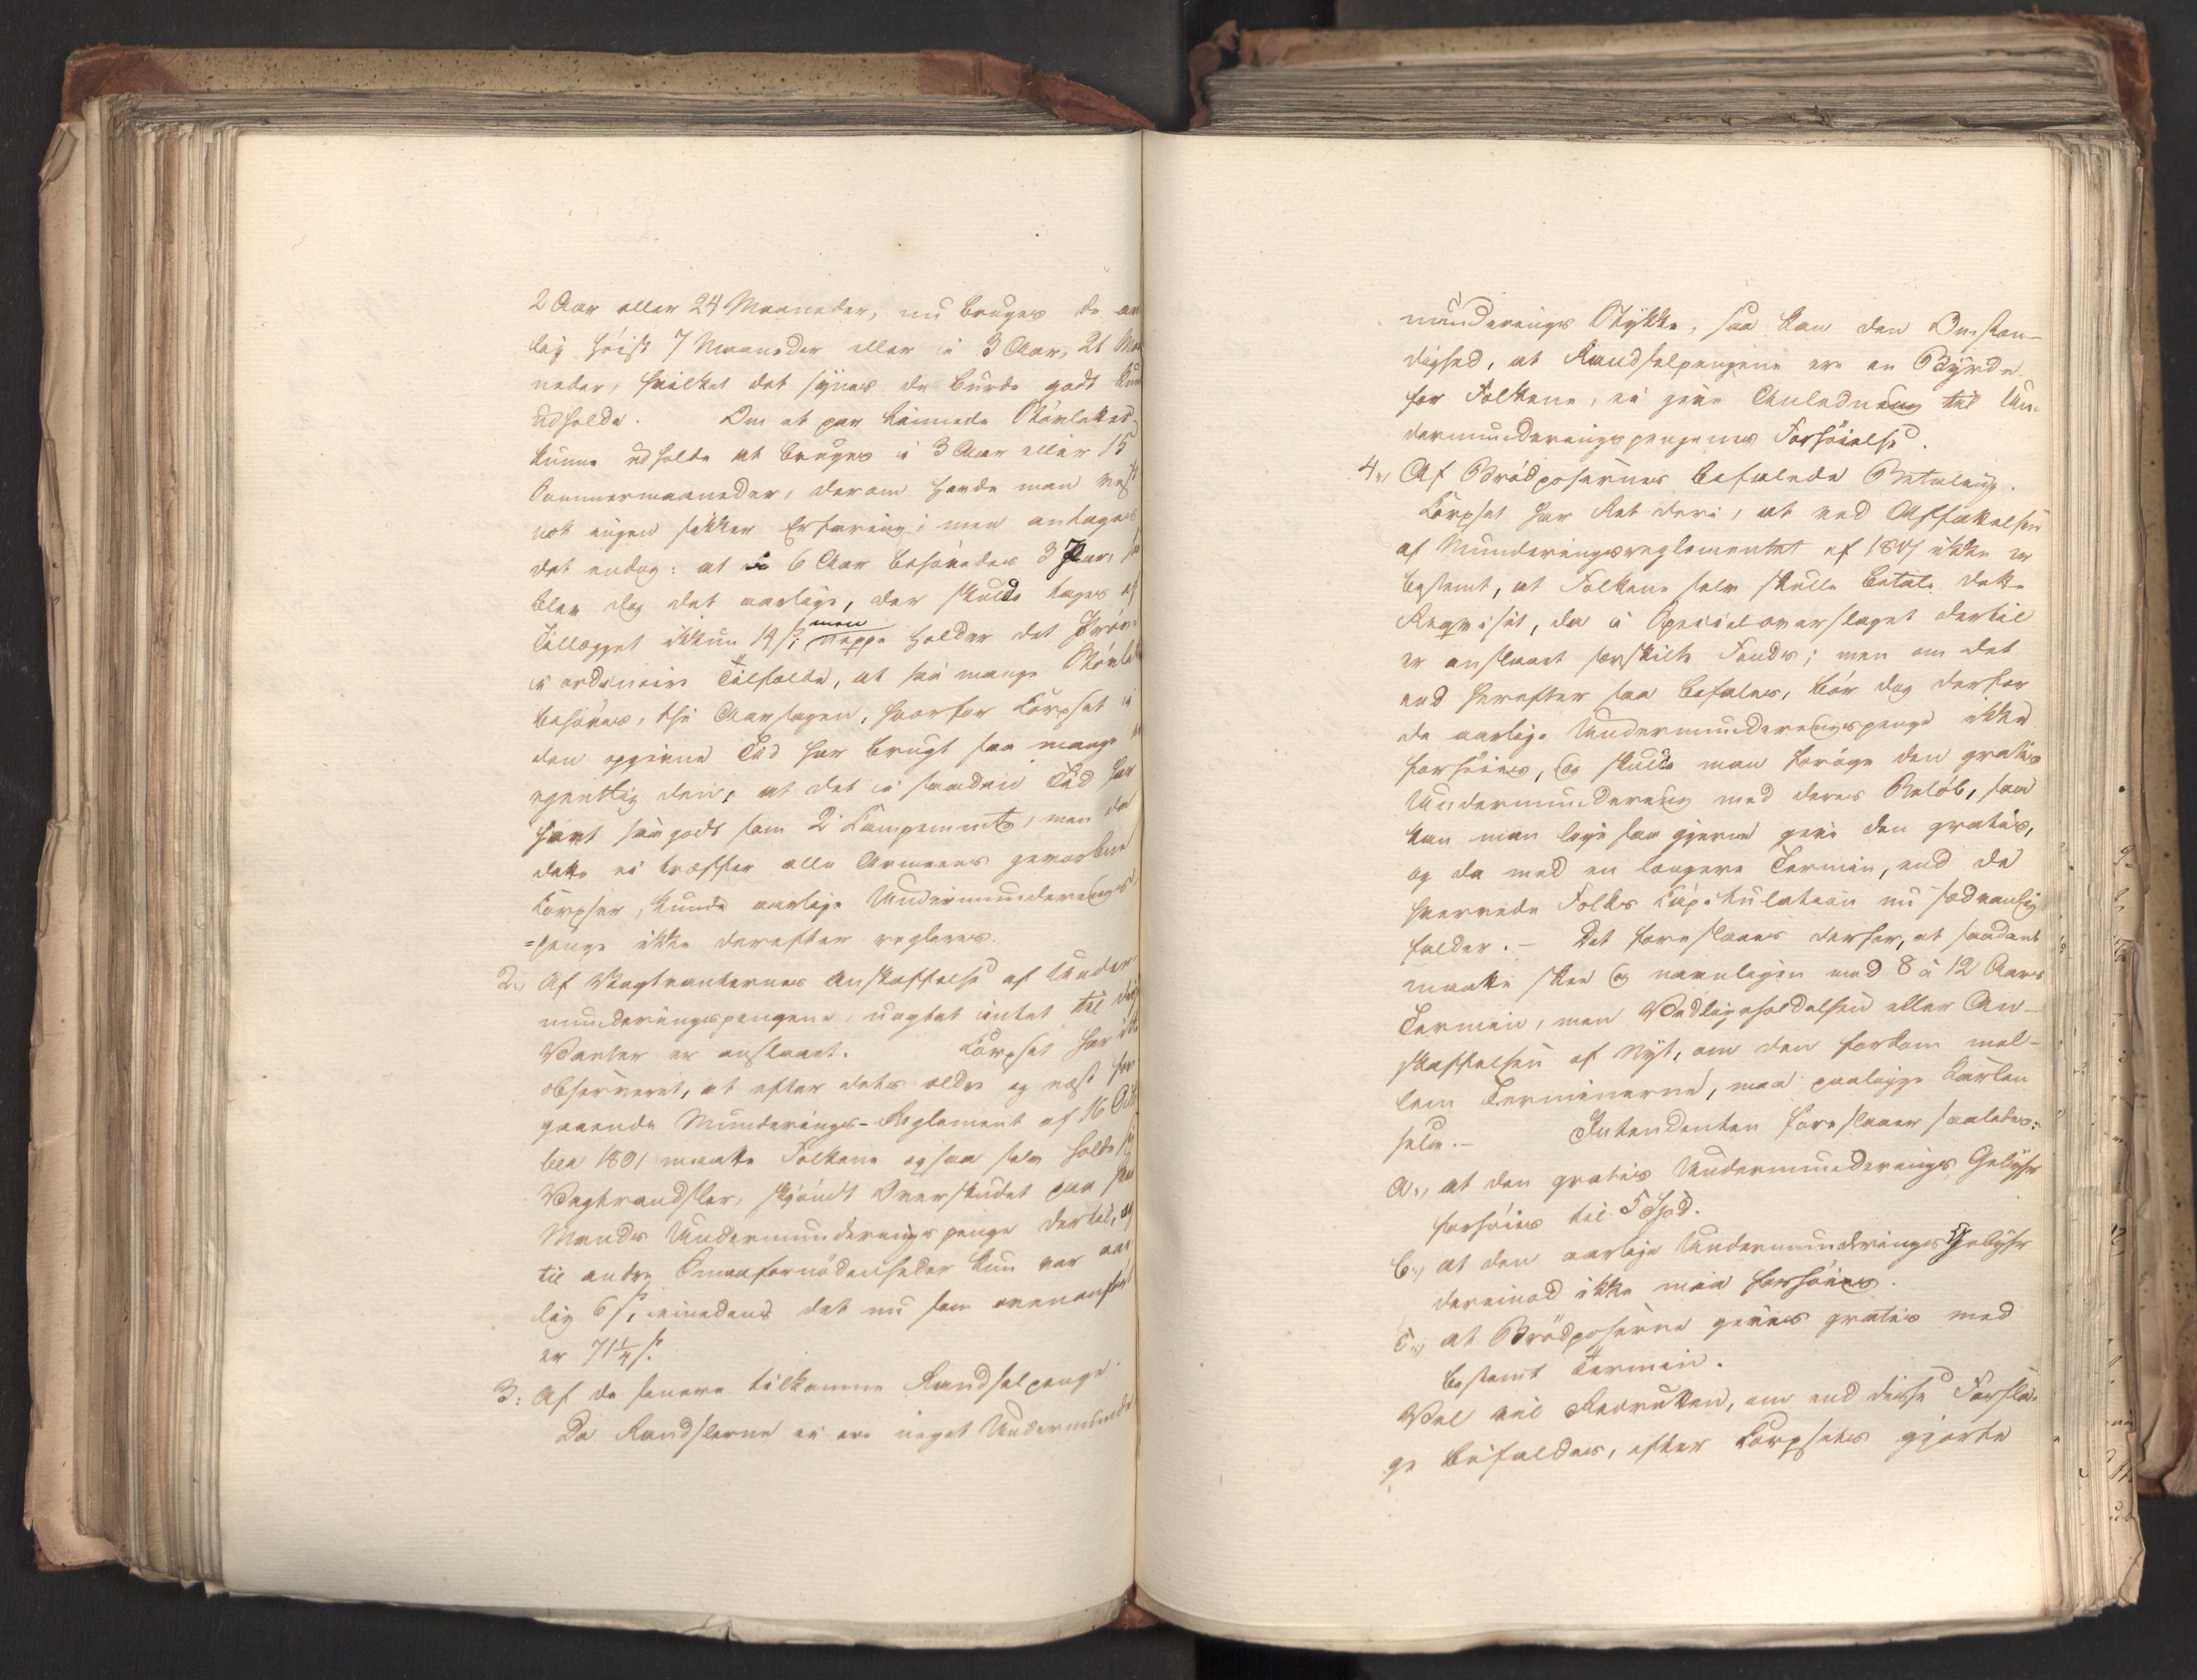 2 Aar eller 24 Maaneder, nu bruges de aar
lig høist 7 Maaneder eller i 3 Aar, 21 Maa
neder, hvilket det synes de burde godt kun
udholde. Om et par Støvletter
kunne udholde at bruges i 3 Aar eller 15
Sommermaaneder, derom havde man vist
nok ingen sikker Erfaring; men antages
det endog: at i 6 Aar behøvedes 3 Par, saa
blev dog det aarlige, der skulde tages af
Tillægget ikkun 14 s; men neppe holder det Prøve
i ordinaire Tilfælde, at saa mange Støvlet
behøves, thi Aarsagen, hvorfor Corpset i
den opgivne Tid har brugt saa mange er
egentlig den, at det i saadan Tid har
havt saagodt som 2 Campements, men da
dette ei træffer alle Armeens gevorbne
Corpser, kunde aarlige Undermunderings
=penge ikke derefter regleres.
2., Af Vagtvanternes Anskaffelse af Under
munderingspengene, uagtet intet til disse
Vanter er anslaaet. Corpset har ikke
observeret, at efter dets ældre og næst for
gaaende Munderings-Reglement af 16 Octo
ber 1801 maatte Folkene ogsaa selv holde sig
Vagthandsker, skjøndt Overskudet paa hver
Mands Undermunderingspenge dertil, og
til andre Smaafornødenheder kun var aar
lig 6 s, imedens det nu som ovenanført
er 71 1/4 s.
3: Af de senere tilkomne Randselpenge.
Da Randslerne ei ere noget Undermunde
munderings Stykke, saa kan den Omstæn-
dighed, at Randselpengene ere en Byrde
for Folkene, ei give Anledning til Un-
dermunderingspengenes Forhøielse.
4., Af Brødposernes befalede Betaling.
Corpset har Ret deri, at ved Affattelsen
af Munderingsreglementet af 1807 ikke er
bestemt, at Folkene selv skulle betale dette
Reqvisit, da i Specialoverslaget dertil
er anslaaet særskilt Fonds; men om det
end herefter saa befales, bør dog derfor
de aarlige Undermunderingspenge ikke
forhøies, og skulde man forøge den gratis
Undermundering med deres Beløb, saa
kan man ligesaa gjerne give den gratis,
og da med en længere Termin, end de
hvervede Folks Capitulation nu sædvanlig
falder. – Det foreslaaes derfor, at saadant
maatte skee og navnligen med 8 à 12 Aars
Termin, men Vedligeholdelsen eller An-
skaffelsen af Nyt, om den forkom mel-
lem Terminerne, maa paaligge Karlen
selv. – Intendanten foreslaaer saaledes:
a., at den gratis Undermunderings Gebyhr
forhøies til 5 Rbd.
b., at den aarlige Undermunderings Gebyhr
derimod ikke maa forhøies.
c., at Brødposerne gives gratis med
bestemt Termin.
Vel vil Recrutten, om end disse Forsla-
ge bifaldes, efter Corpsets gjorte